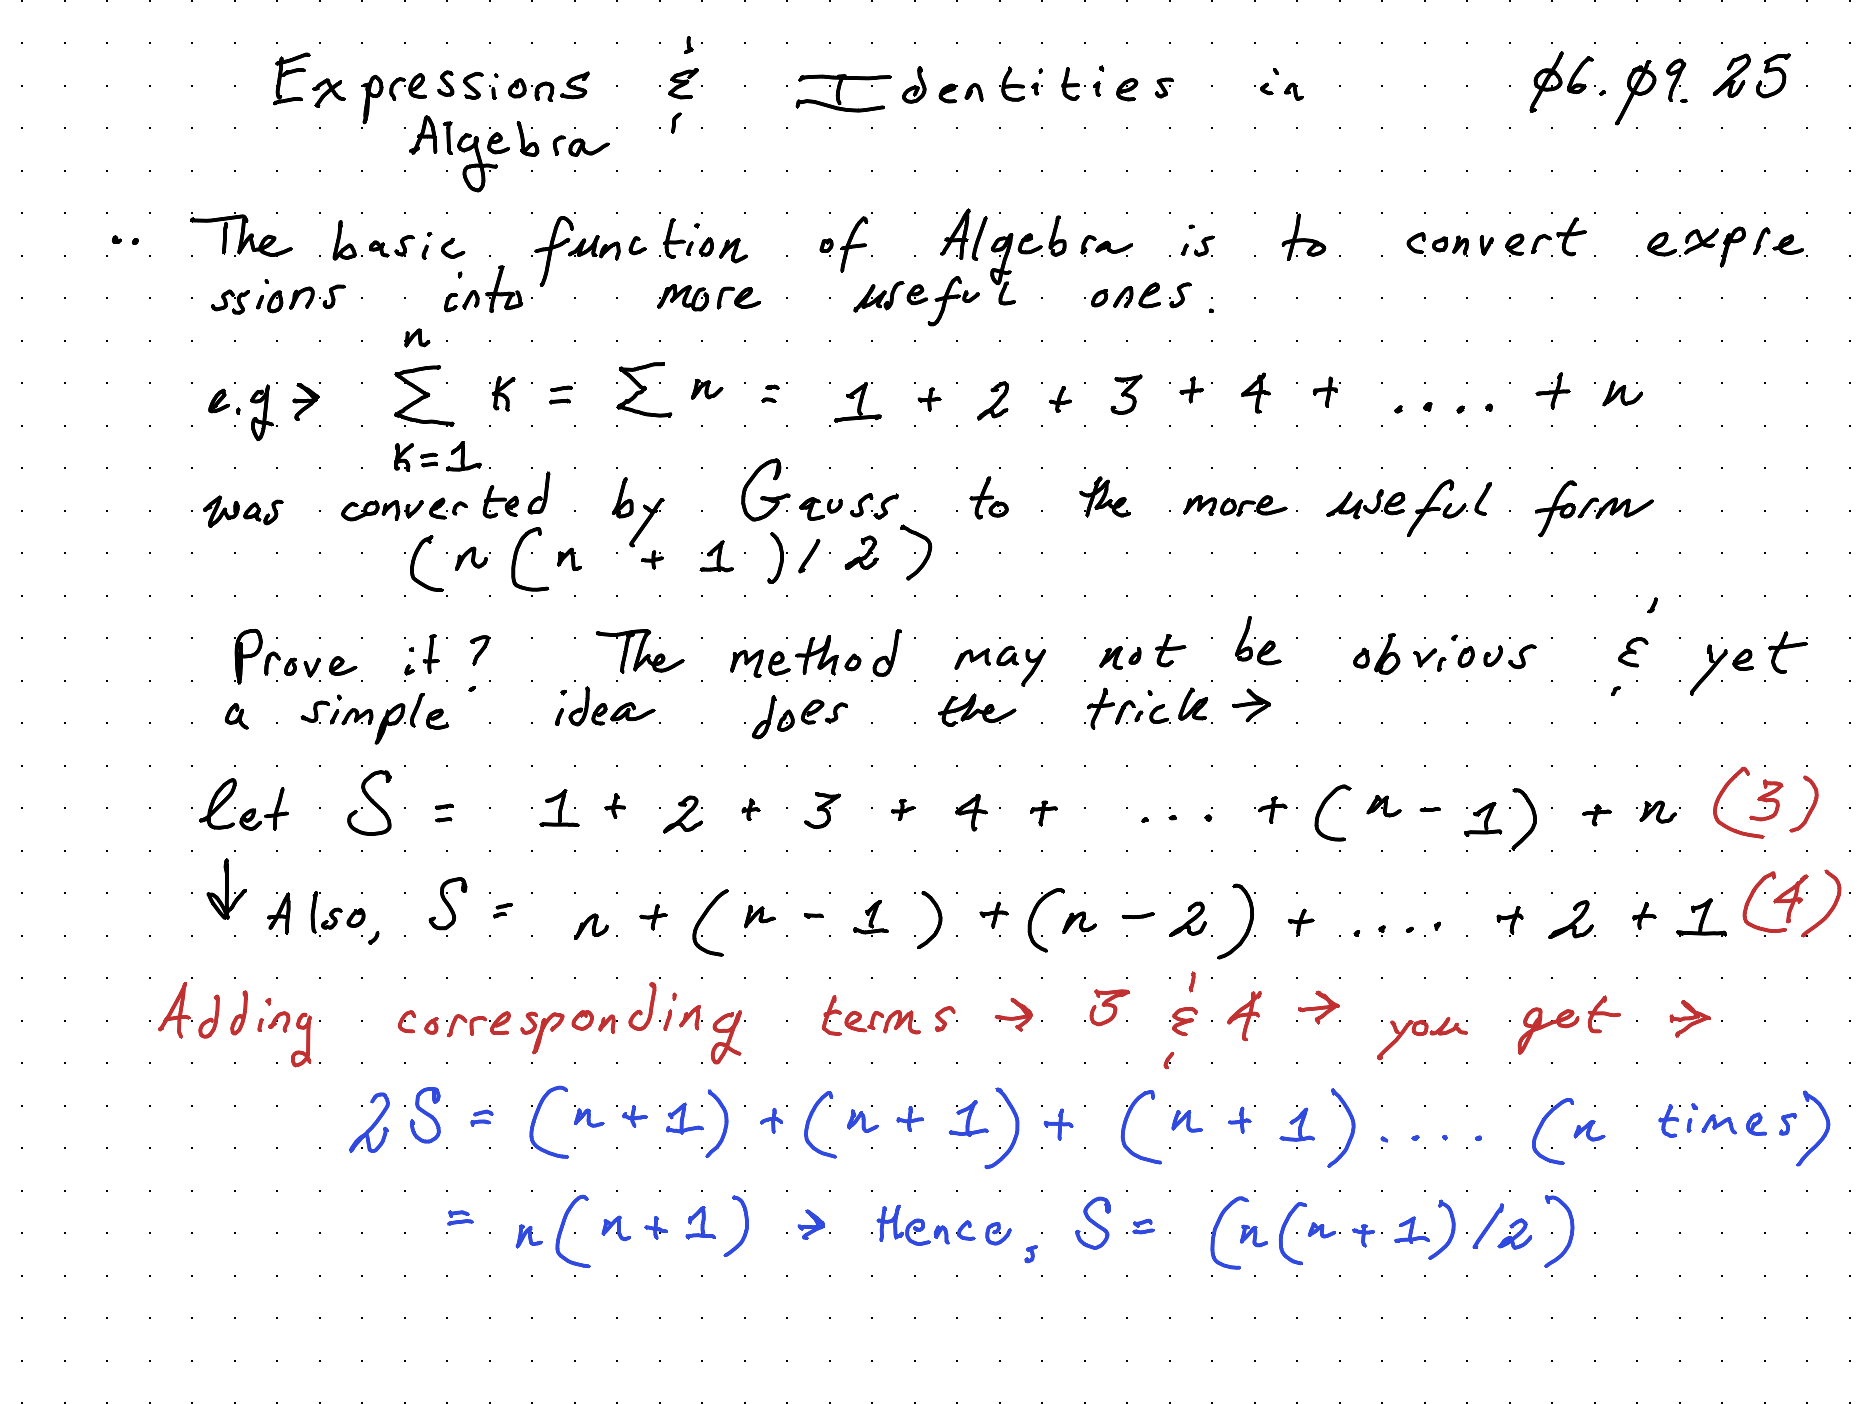 Expressions & Identities in ø6.ø9.25
Algebra
.. The basic function of Algebra is to convert expre
ssions into more useful ones.
n
e.g → ∑ K = ∑ n = 1 + 2 + 3 + 4 + .... + n
K=1
was converted by Gauss to the more useful form
(n(n + 1)/2)
Prove it? The method may not be obvious & yet
a simple idea does the trick →
let S = 1 + 2 + 3 + 4 + ... + (n - 1) + n (3)
↓ Also, S = n + (n - 1) + (n - 2) + .... + 2 + 1 (4)
Adding corresponding terms → 3 & 4 → you get →
2S = (n + 1) + (n + 1) + (n + 1) .... (n times)
= n(n + 1) → Hence, S = (n(n + 1)/2)